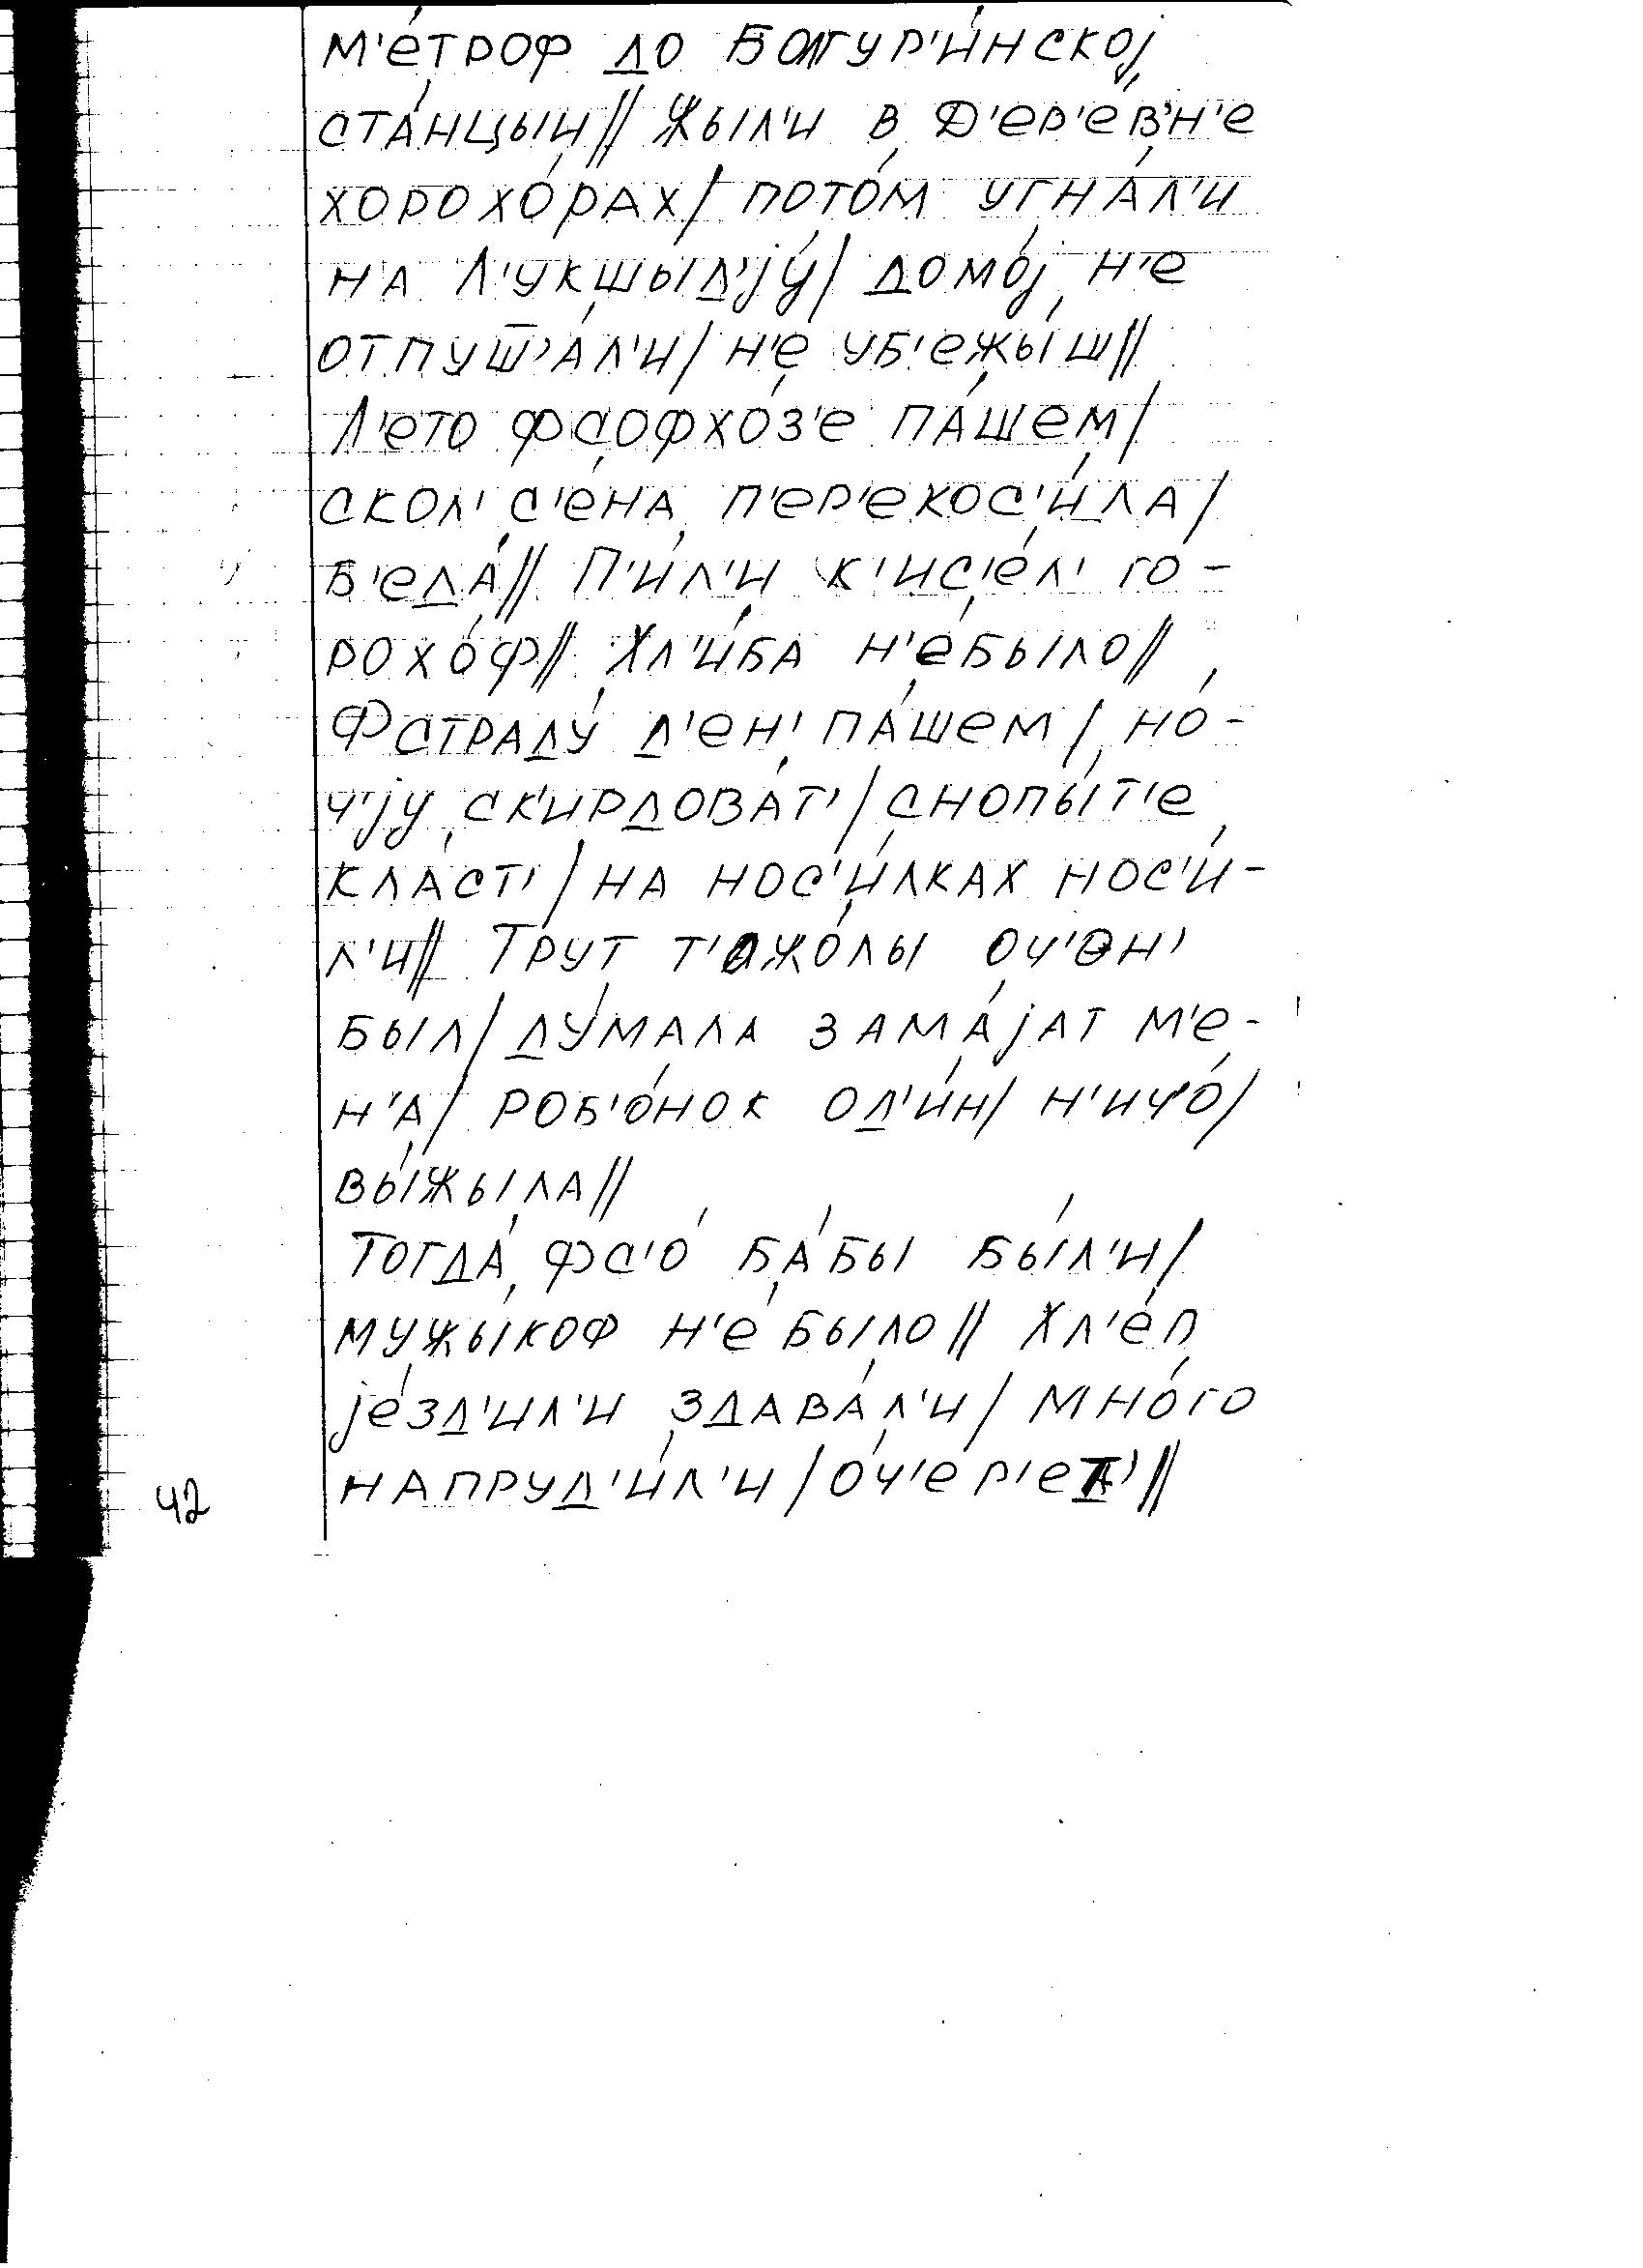 м'е́троф до Болгур'и́нској
ста́нцыи // Жыл'и в д'ер'е́в'н'е
хорохо́рах / пото́м угна́л'и
на Л'укшыд'ју́ / домо́ј н'е
отпуш̅'а́л'и / н'е уб'ежы́ш //
Л'ето фсофхо́з'е па́шем /
скол' с'е́на п'ер'екос'и́ла /
б'еда́ // П'и́л'и к'ис'е́л' го-
рохо́ф // Хл'и́ба н'е́было //
Фстраду́ д'ен' па́шем / но́-
ч'ју ск'ирдова́т' / снопы́т'е
кла́ст' / на нос'и́лках нос'и́-
л'и // Трут т'ажо́лы оч'ен'
был / ду́мала зама́јат м'е-
н'а́ / роб'о́нок од'и́н / н'ич'о́ /
вы́жыла //
Тогда́ фс'о́ ба́бы бы́л'и /
мужы́коф н'е́ было // Хл'е́п
је́зд'ил'и здава́л'и / мно́го
напруд'и́л'и / о́ч'ер'ет' //
42